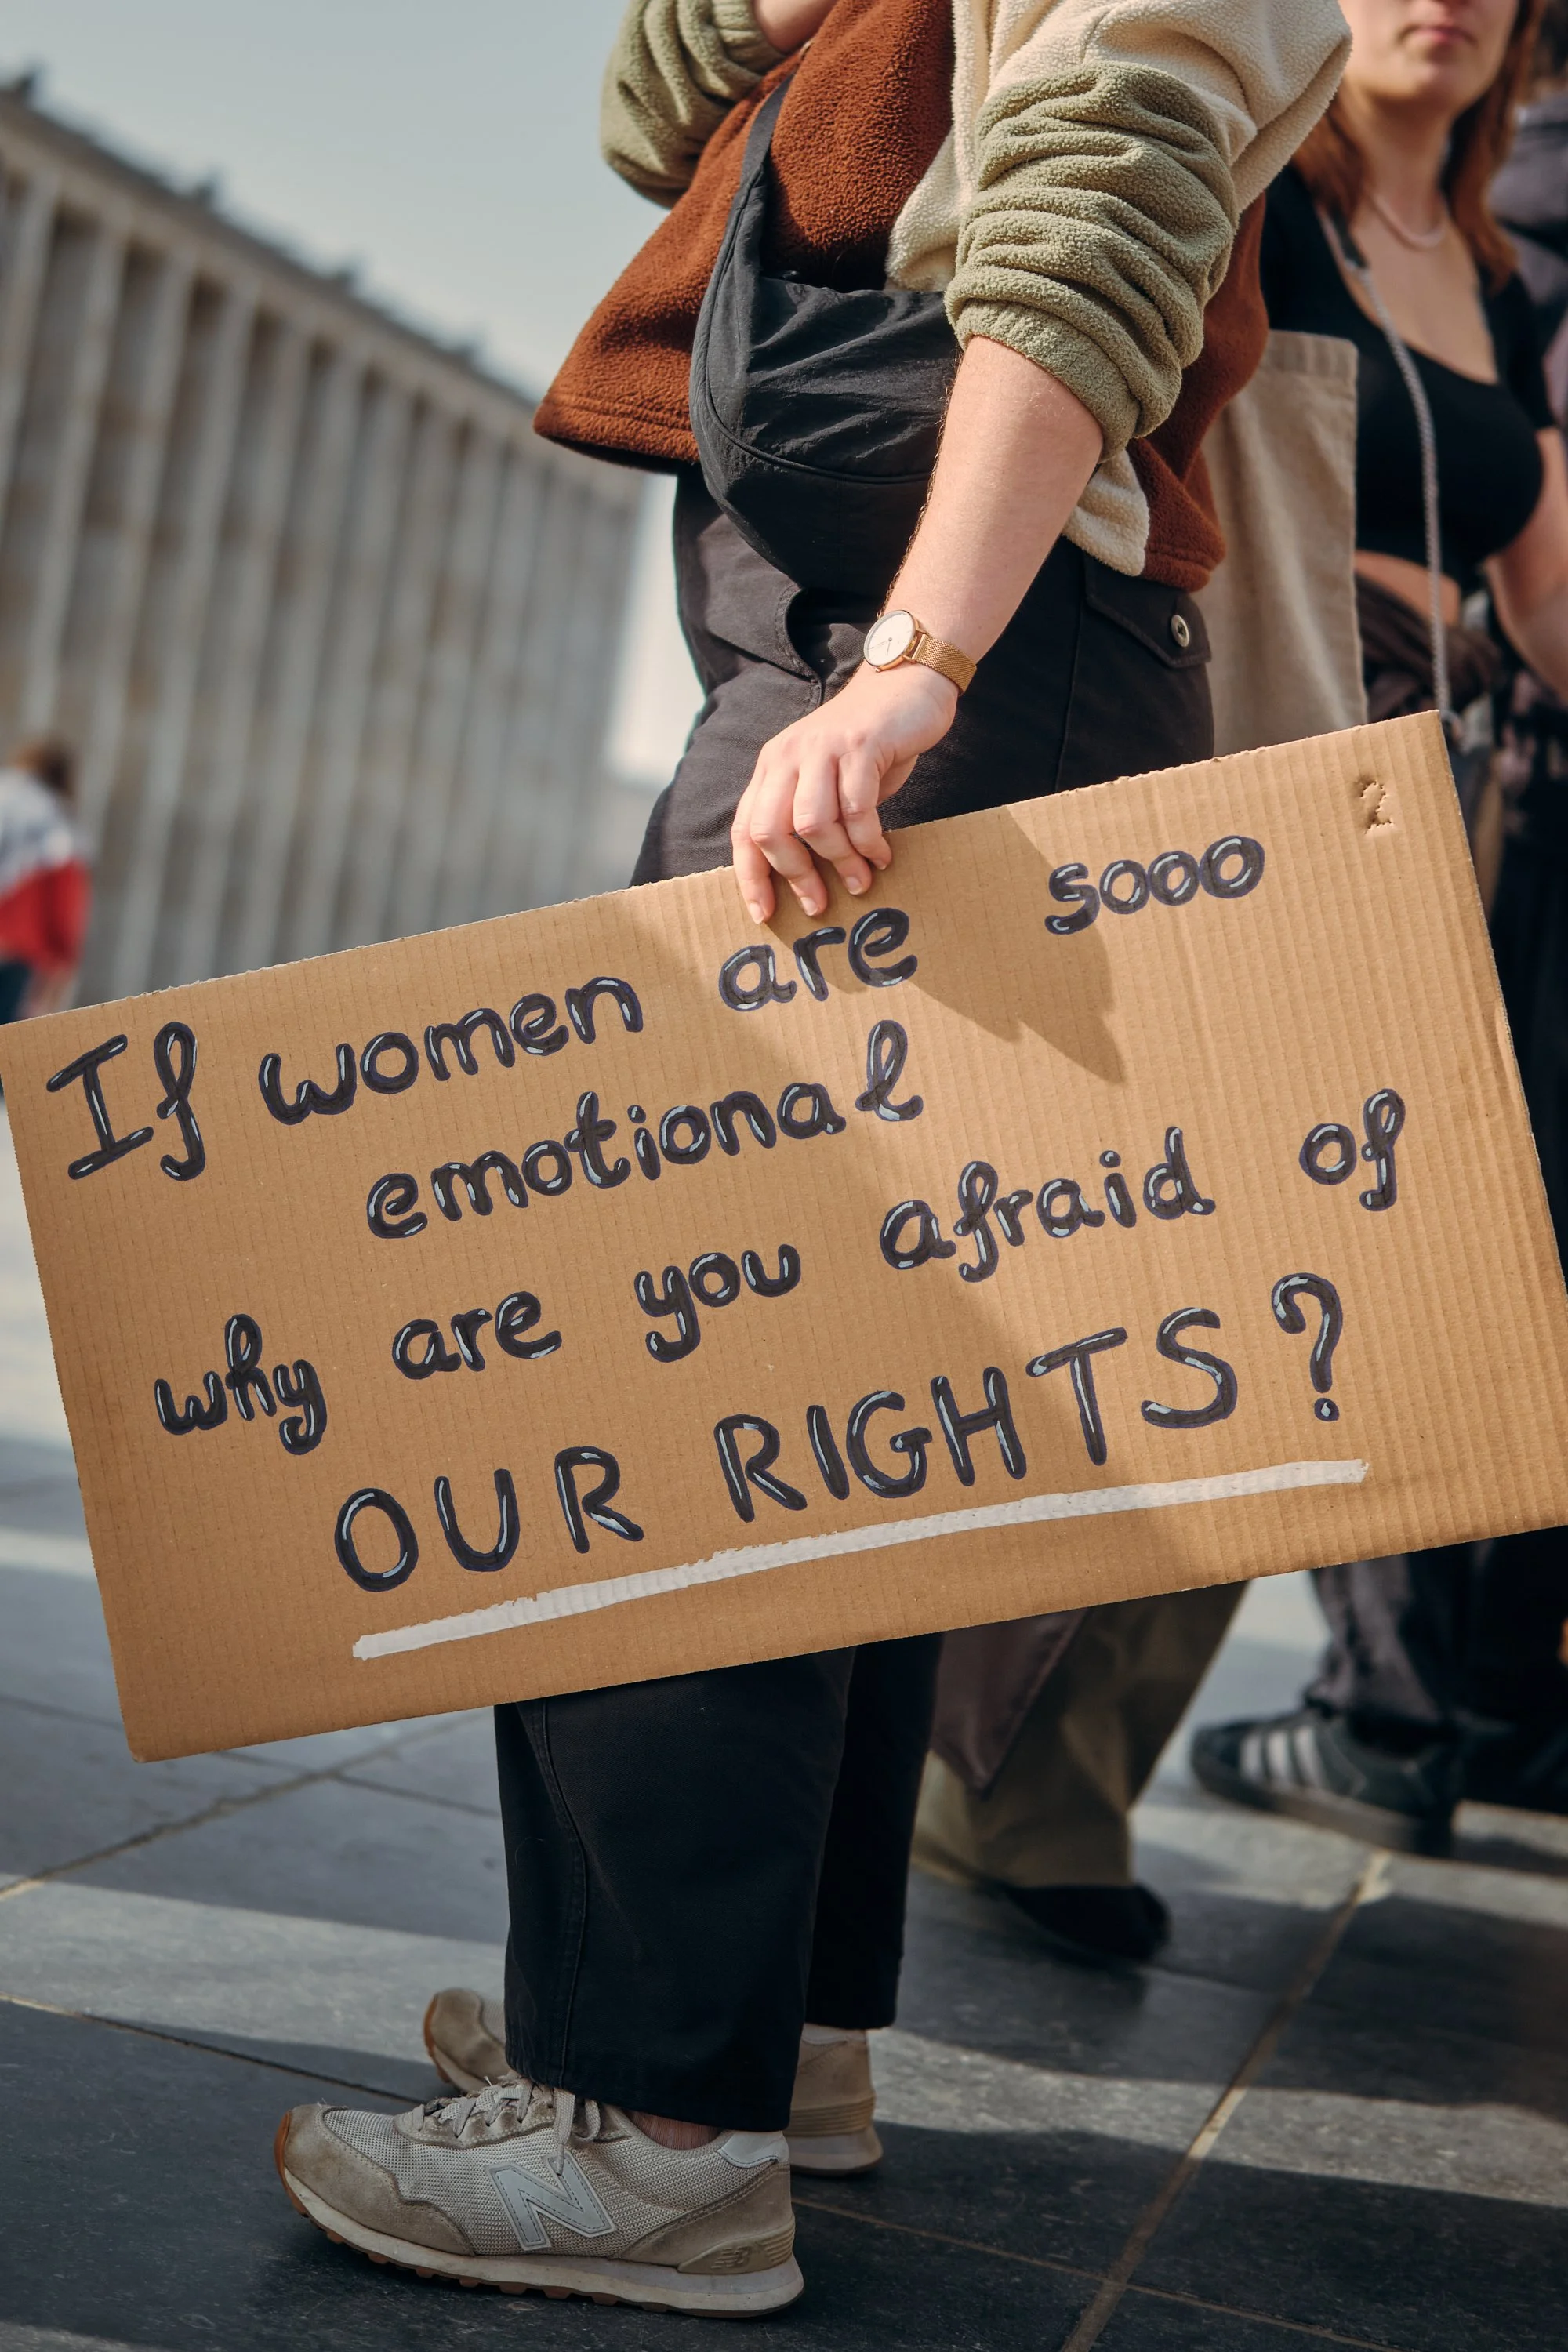 2
If women are sooo
emotional
why are you afraid of
OUR RIGHTS?
N